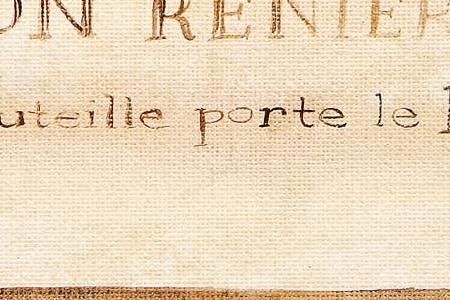 ON RENIER
uteille porte le